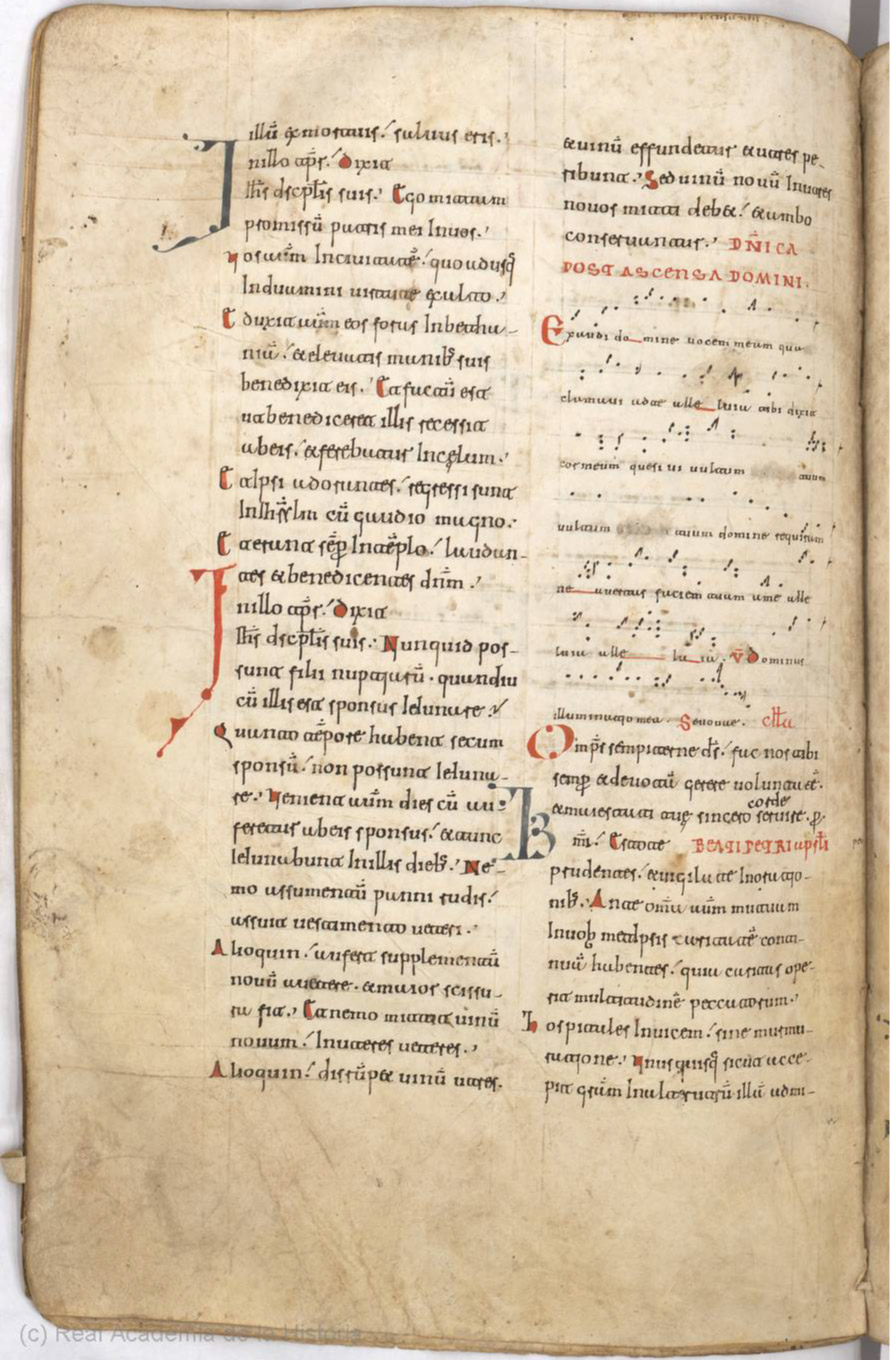 illū ex mortuis. saluus eris.
In illo tp̄r. Dixit
Ih̄s discplīs suis. Ego mittam
promissū patris mei In uos.
Uos autm̄ In ciuitatē. quo udusq̄
Induamini uirtutē ex alto.
Eduxit autm̄ eos foras In betha-
niā. & eleuatis manib; suis
benedixit eis. Et factū est
ut benediceret illis recessit
ab eis. & ferebatur In celum.
Et ipsi adorantes. regressi sunt
In Ih̄rl̄m cū gaudio magno.
Et erant semp̄ In tēplo. laudan-
tes & benedicentes dn̄m.
In illo tp̄r. Dixit
Ih̄s discplīs suis. Nunquid pos-
sunt filii nupciarū. quandiu
cū illis est sponsus Ieiunare.
Quanto tēpore habent secum
sponsū. non possunt Ieiuna-
re. Uenient autm̄ dies cū au-
feretur ab eis sponsus. & tunc
Ieiunabunt In illis dieb;. Ne-
mo assumentū panni rudis.
assuit uestimento ueteri.
Alioquin. aufert supplementū
nouū a uetere. & maior scissu-
ra fit. Et nemo mittit uinū
nouum. In utres ueteres.
Alioquin. disrūpet uinū utres.
& uinū effundetur & utres pe-
ribunt. Sed uinū nouū In utres
nouos mitti debet. & ambo
conseruantur. DN̄ICA
POST ASCENSA DOMINI.
Exaudi domine uocem meam qua
clamaui ad te alleluia tibi dixit
cor meum quesiui uultum tuum
uultum tuum domine requiram
ne auertas faciem tuam a me alle
luia alle lu ia. V̄ Dominus
illuminatio mea. Seuouae. cllā
Omp̄s sempiterne ds̄. fac nos tibi
semp̄ & deuotā gerere uoluntatē.
& maiestati tue sincero corde seruire. p̄.
BEATI PETRI apstl̄i
prudentes. & uigilate In oratio-
nib;. Ante omīa autm̄ mutuam
In uobis metipsis caritatē conti-
nuā habentes. quia caritas ope-
rit multitudinē peccatorum.
Hospitales Inuicem. sine murmu-
ratione. Unusquisq̄ sicut acce-
pit grām In alterutrū illā admi-